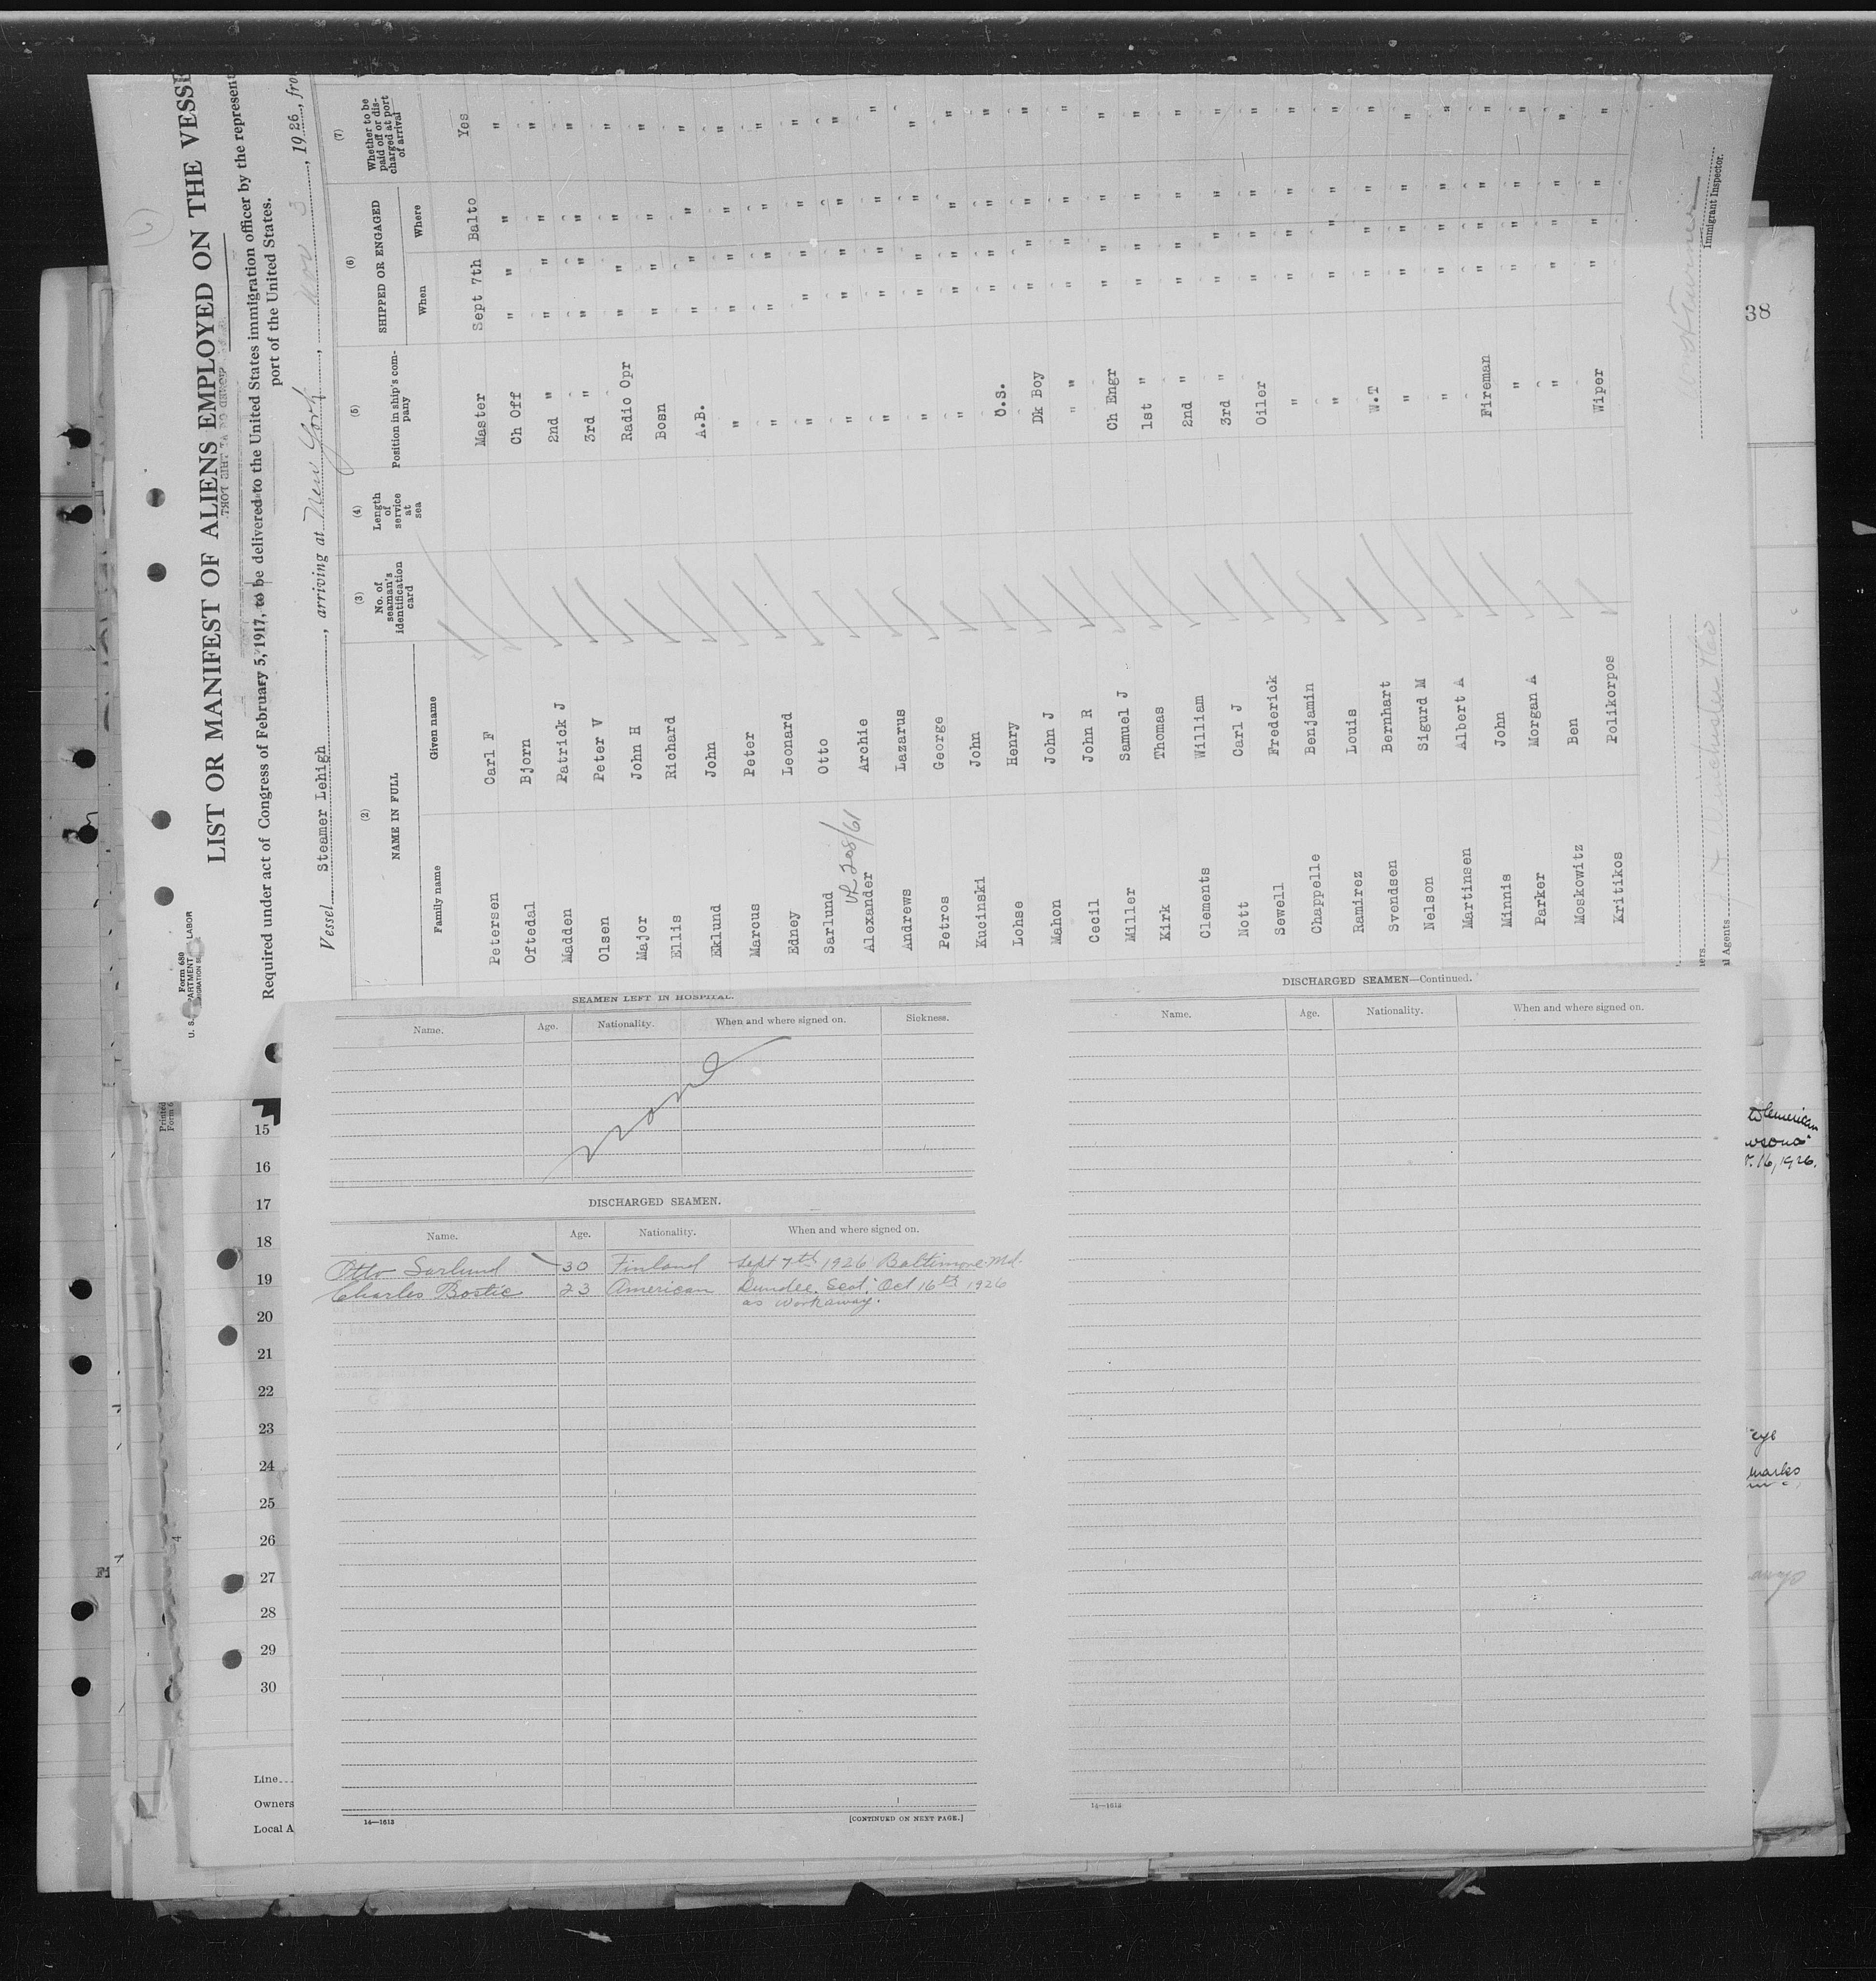 Form 680
LIST OR MANIFEST OF ALIENS EMPLOYED ON THE VESSE
Required under act of Congress of February 5, 1917, to be delivered to the United States immigration officer by the represent
port of the United States.
Vessel Steamer Lehigh, arriving at New York, Nov 3, 1926, fro
(2) (3) (4) (5) (6) (7)
NAME IN FULL No. of seaman's identification card Length of service at sea Position in ship's company SHIPPED OR ENGAGED Whether to be paid off or discharged at port of arrival
Family name Given name When Where
Petersen Carl F Master Sept 7th Balto Yes
Oftedal Bjorn Ch Off " " " "
Madden Patrick J 2nd " " " " "
Olsen Peter V 3rd " " " " "
Major John H Radio Opr " " " "
Ellis Richard Bosn " " " "
Eklund John A.B. " " " "
Marcus Peter " " " " "
Edney Leonard " " " " "
Sarlund Otto " " " " "
Alexander Archie " " " " "
Andrews Lazarus " " " " "
Petros George " " " " "
Kucinski John " " " " "
Lohse Henry O.S. " " " "
Mahon John J Dk Boy " " " "
Cecil John R " " " " " "
Miller Samuel J Ch Engr " " " "
Kirk Thomas 1st " " " " "
Clements William 2nd " " " " "
Nott Carl J 3rd " " " " "
Sewell Frederick Oiler " " " "
Chappelle Benjamin " " " " "
Ramirez Louis " " " " "
Svendsen Bernhart W.T " " " "
Nelson Sigurd M " " " " "
Martinsen Albert A " " " " "
Minnis John Fireman " " " "
Parker Morgan A " " " " "
Moskowitz Ben " " " " "
Kritikos Polikorpos Wiper " " " "
Immigrant Inspector.
Agents
38
SEAMEN LEFT IN HOSPITAL.
Name. Age. Nationality. When and where signed on. Sickness.
None
DISCHARGED SEAMEN.
Name. Age. Nationality. When and where signed on.
Otto Sarlund 30 Finland Sept 7th 1926 Baltimore Md.
Charles Bostic 23 American Dundee. Scot. Oct 16th 1926
as workaway.
14—1613
[CONTINUED ON NEXT PAGE.]
DISCHARGED SEAMEN—Continued.
Name. Age. Nationality. When and where signed on.
14—1613
15
16
17
18
19
20
21
22
23
24
25
26
27
28
29
30
Line
Owners
Local A
American
16, 1926.